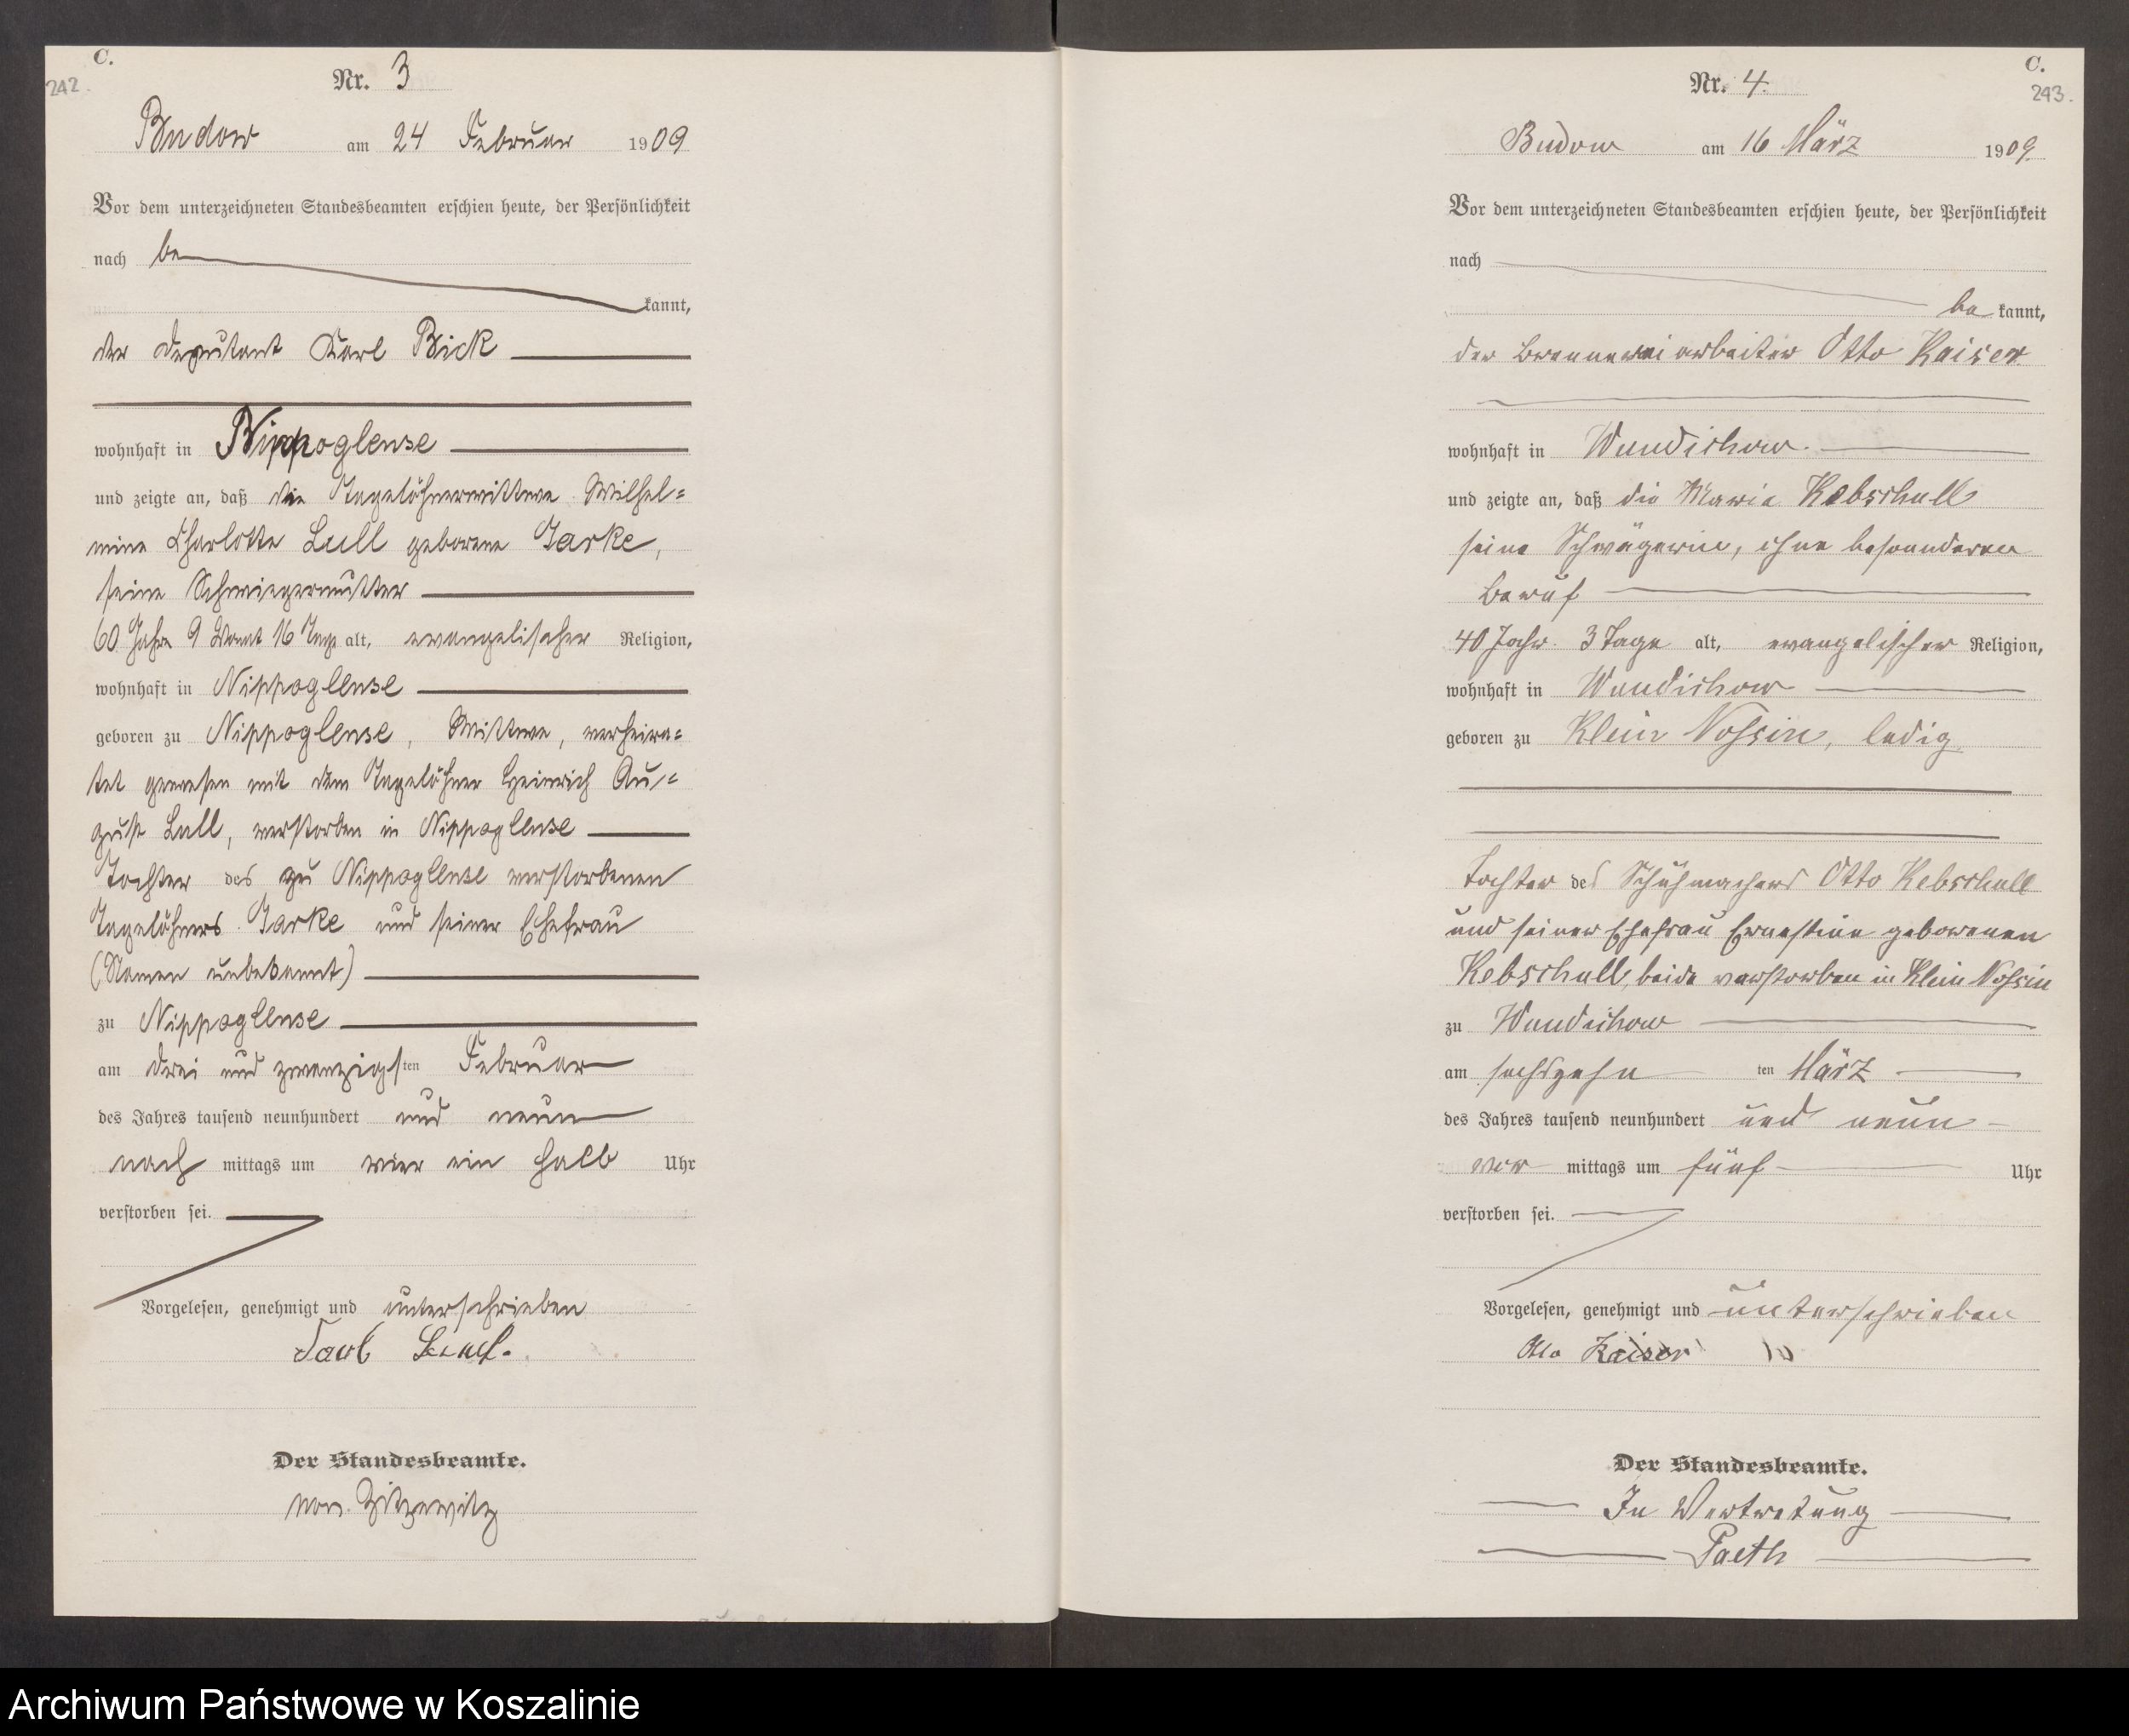 C.
242.
Nr. 3
Budow am 24 Februar 1909
Vor dem unterzeichneten Standesbeamten erschien heute, der Persönlichkeit
nach be
kannt,
der Deputant Karl Bick
wohnhaft in Nippoglense
und zeigte an, daß die Tagelöhnerwittwe Wilhel=
mine Charlotte Lull geborene Jarke,
seine Schwiegermutter
60 Jahre 9 Monat 16 Tage alt, evangelischer Religion,
wohnhaft in Nippoglense
geboren zu Nippoglense, Wittwe, verheira=
tet gewesen mit dem Tagelöhner Heinrich Au=
gust Lull, verstorben in Nippoglense
Tochter des zu Nippoglense verstorbenen
Tagelöhners Jarke und seiner Ehefrau
(Namen unbekannt)
zu Nippoglense
am drei und zwanzigsten Februar
des Jahres tausend neunhundert und neun
nach mittags um vier ein halb Uhr
verstorben sei.
Vorgelesen, genehmigt und unterschrieben
Der Standesbeamte.
von Zitzewitz
C.
243.
Nr. 4.
Budow am 16 März 1909.
Vor dem unterzeichneten Standesbeamten erschien heute, der Persönlichkeit
nach
be kannt,
der Brennereiarbeiter Otto Kaiser
wohnhaft in Wundichow.
und zeigte an, daß die Maria Kebschull
seine Schwägerin, ohne besonderen
Beruf
40 Jahr 3 Tage alt, evangelischer Religion,
wohnhaft in Wundichow
geboren zu Klein Nossin, ledig
Tochter des Schuhmachers Otto Kebschull
und seiner Ehefrau Ernestine geborenen
Kebschull, beide verstorben in Klein Nossin
zu Wundichow
am sechszehn ten März
des Jahres tausend neunhundert und neun
vor mittags um fünf Uhr
verstorben sei.
Vorgelesen, genehmigt und unterschrieben
Otto Kaiser
Der Standesbeamte.
In Vertretung
Paeth
Archiwum Państwowe w Koszalinie